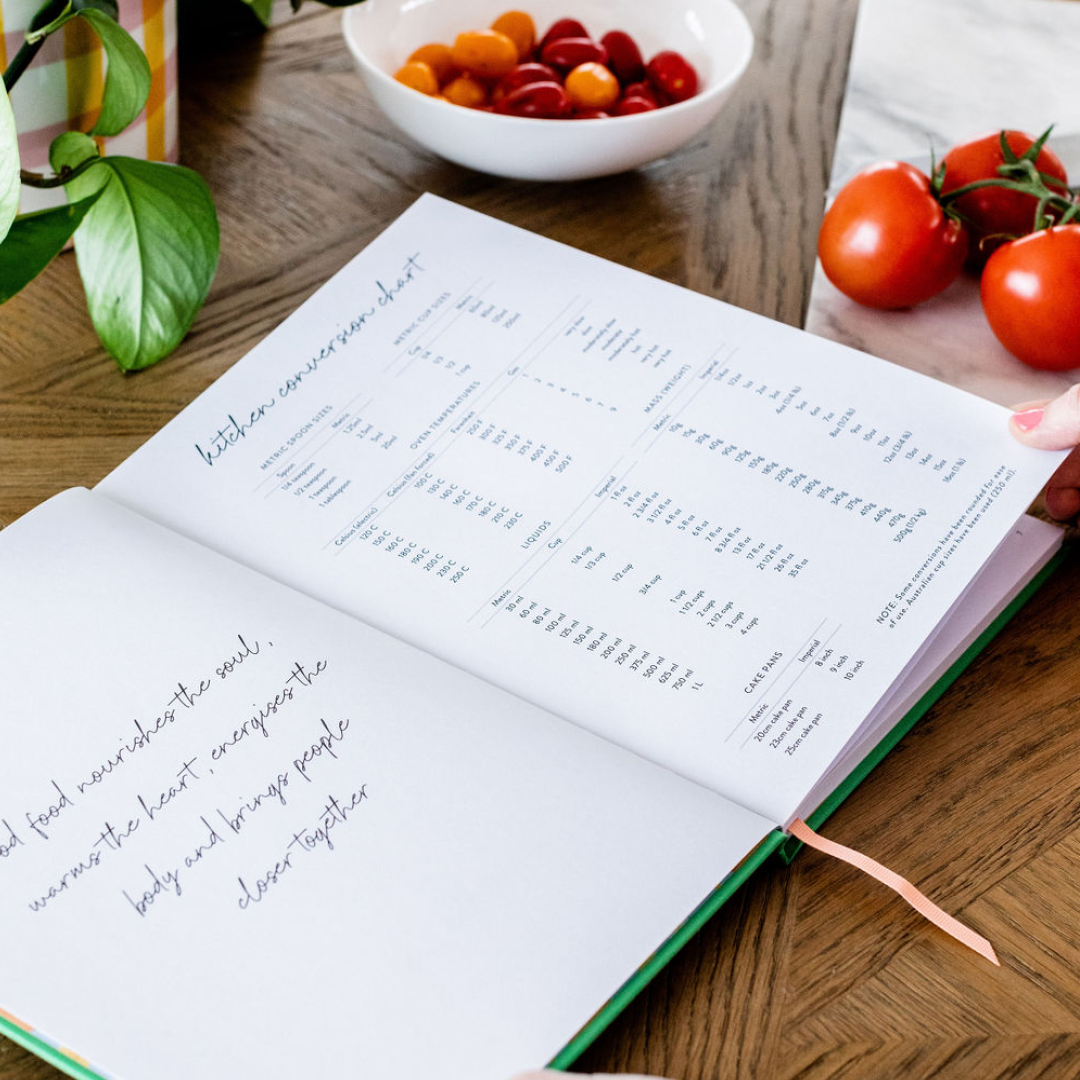 od food nourishes the soul,
warms the heart, energises the
body and brings people
closer together
kitchen conversion chart
METRIC SPOON SIZES
Spoon Metric
1/4 teaspoon 1.25ml
1/2 teaspoon 2.5ml
1 teaspoon 5ml
1 tablespoon 20ml
METRIC CUP SIZES
Cup Metric
1/4 60ml
1/3 80ml
1/2 125ml
1 cup 250ml
OVEN TEMPERATURES
Celsius (electric) Celsius (fan forced) Farenheit Gas
120 C 100 C 250 F 1 very slow
150 C 130 C 300 F 2 slow
160 C 140 C 325 F 3 moderately slow
180 C 160 C 350 F 4 moderate
190 C 170 C 375 F 5 moderately hot
200 C 180 C 400 F 6 hot
230 C 210 C 450 F very hot
250 C 230 C 500 F 9 very hot
LIQUIDS
Metric Cup Imperial
30 ml 1 fl oz
60 ml 1/4 cup 2 fl oz
80 ml 1/3 cup 2 3/4 fl oz
100 ml 3 1/2 fl oz
125 ml 1/2 cup 4 fl oz
150 ml 5 fl oz
180 ml 3/4 cup 6 fl oz
200 ml 7 fl oz
250 ml 1 cup 8 3/4 fl oz
375 ml 1 1/2 cups 13 fl oz
500 ml 2 cups 17 fl oz
625 ml 2 1/2 cups 21 1/2 fl oz
750 ml 3 cups 26 fl oz
1 L 4 cups 35 fl oz
MASS (WEIGHT)
Metric Imperial
10g 1/4oz
15g 1/2oz
30g 1oz
60g 2oz
90g 3oz
125g 4oz (1/4 lb)
150g 5oz
185g 6oz
220g 7oz
250g 8oz (1/2 lb)
280g 9oz
315g 10oz
345g 11oz
375g 12oz (3/4 lb)
410g 13oz
440g 14oz
470g 15oz
500g (1/2 kg) 16oz (1 lb)
CAKE PANS
Metric Imperial
20cm cake pan 8 inch
23cm cake pan 9 inch
25cm cake pan 10 inch
NOTE: Some conversions have been rounded for ease
of use. Australian cup sizes have been used (250 ml).